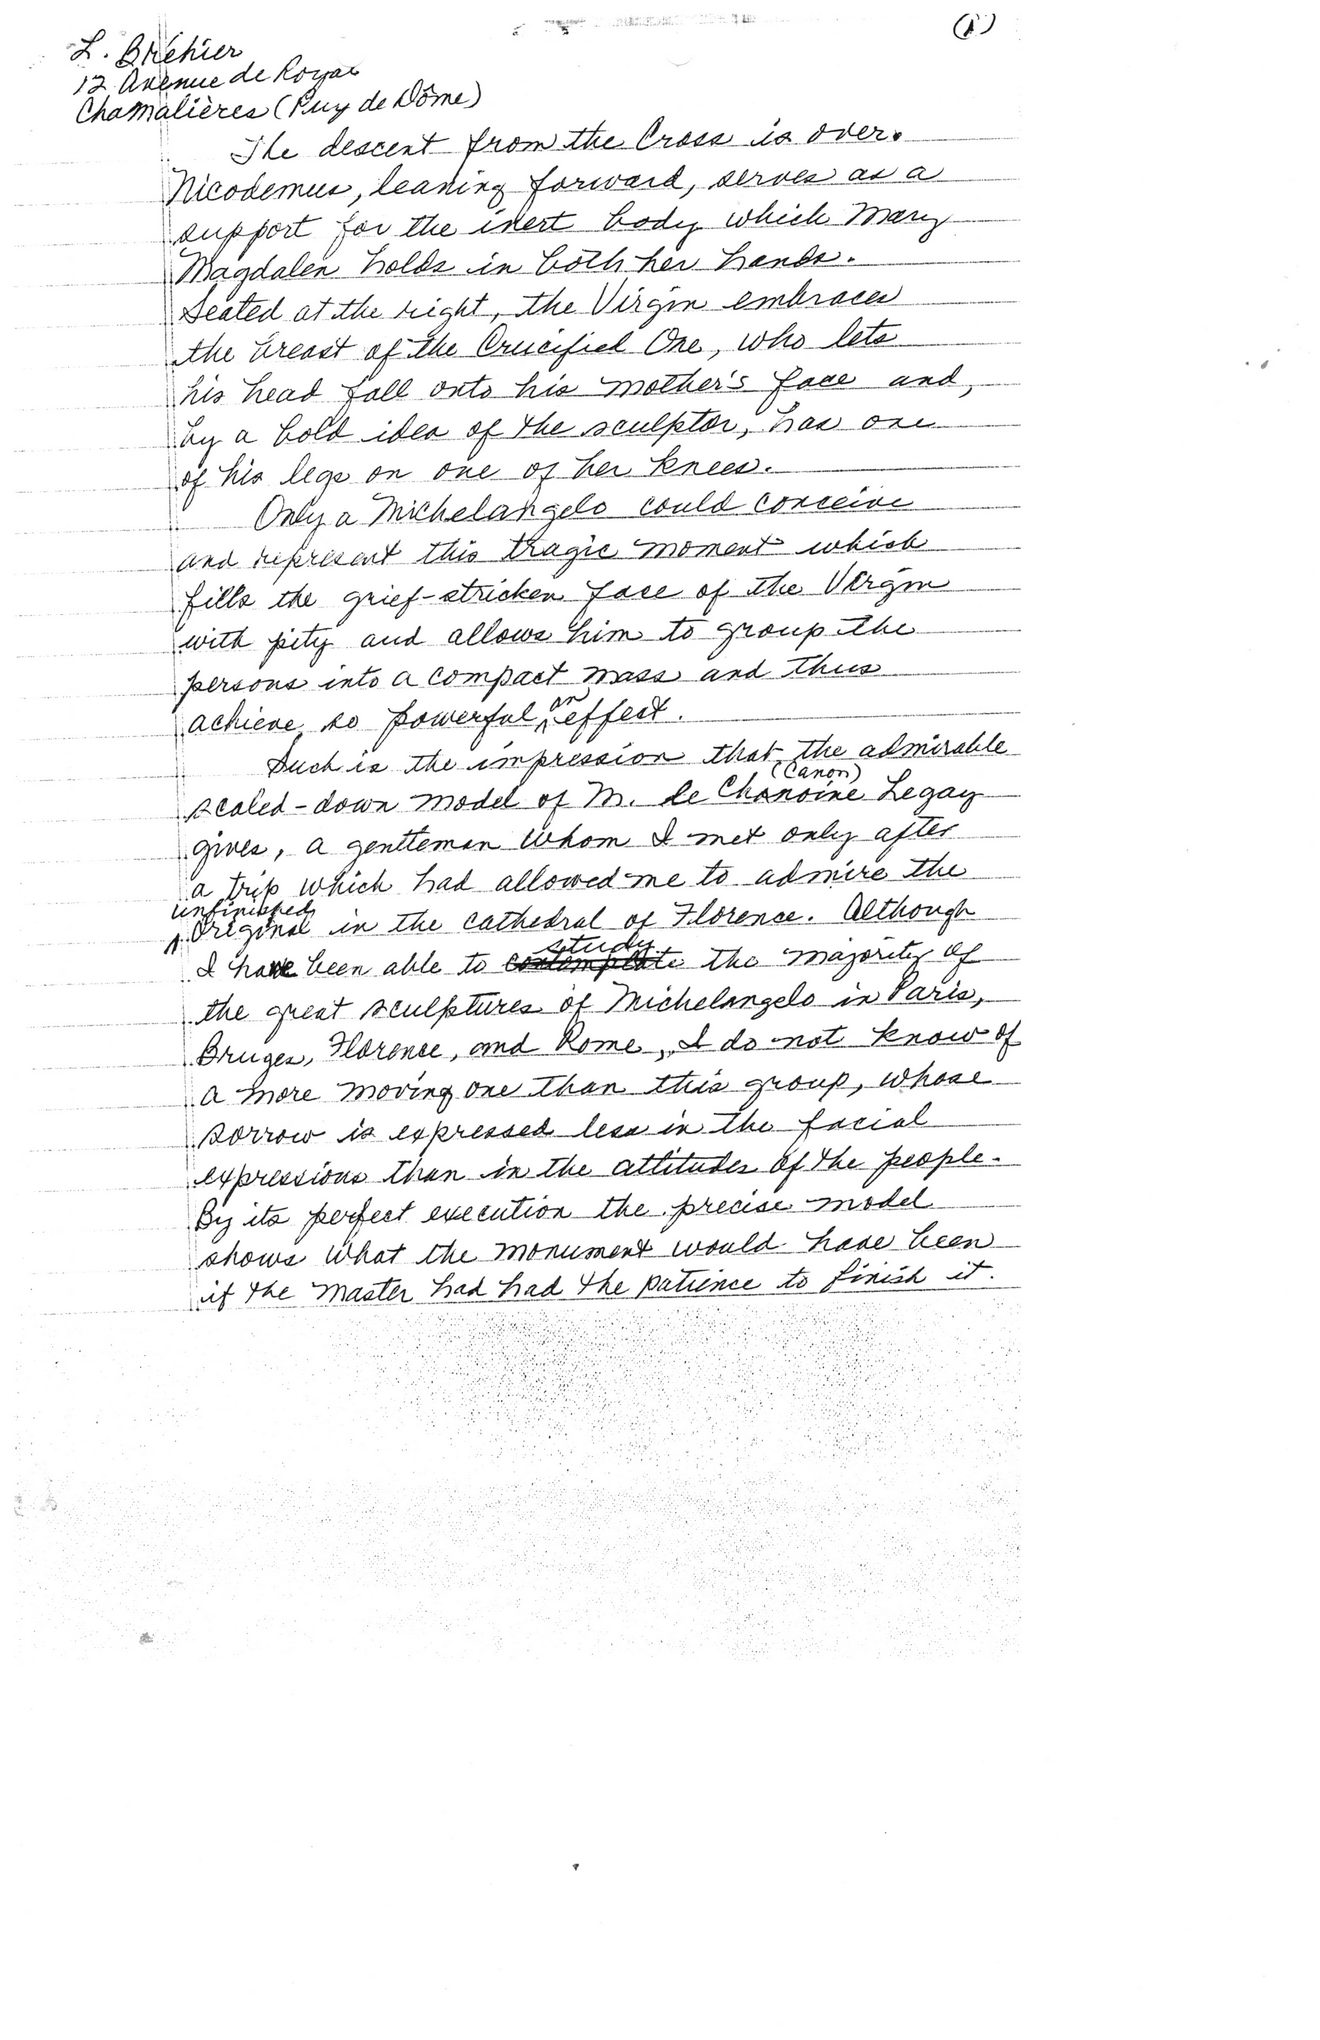 (1)
L. Bréhier
12 Avenue de Royat
Chamalières (Puy de Dôme)
The descent from the Cross is over.
Nicodemus, leaning forward, serves as a
support for the inert body which Mary
Magdalen holds in both her hands.
Seated at the right, the Virgin embraces
the breast of the Crucified One, who lets
his head fall onto his mother's face and,
by a bold idea of the sculptor, has one
of his legs on one of her knees.
Only a Michelangelo could conceive
and represent this tragic moment which
fills the grief-stricken face of the Virgin
with pity and allows him to group the
persons into a compact mass and thus
achieve so powerful an effect.
Such is the impression that the admirable
(Canon)
scaled-down model of M. le Chanoine Legay
gives, a gentleman whom I met only after
a trip which had allowed me to admire the
unfinished
original in the cathedral of Florence. Although
study
I have been able to contemplate the majority of
the great sculptures of Michelangelo in Paris,
Bruges, Florence, and Rome, I do not know of
a more moving one than this group, whose
sorrow is expressed less in the facial
expressions than in the attitudes of the people.
By its perfect execution the precise model
shows what the monument would have been
if the master had had the patience to finish it.